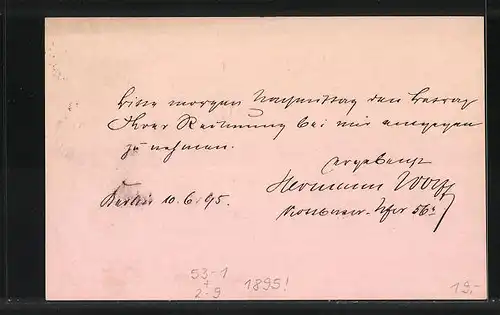 Bitte morgen Nachmittag den Betrag
Ihrer Rechnung bei mir entgegen
zu nehmen.
ergebenst
Hermann Wolff
Berlin 10.6.95.
Kottbuser-Ufer 56
53-1
+
2-9
1895!
19,-